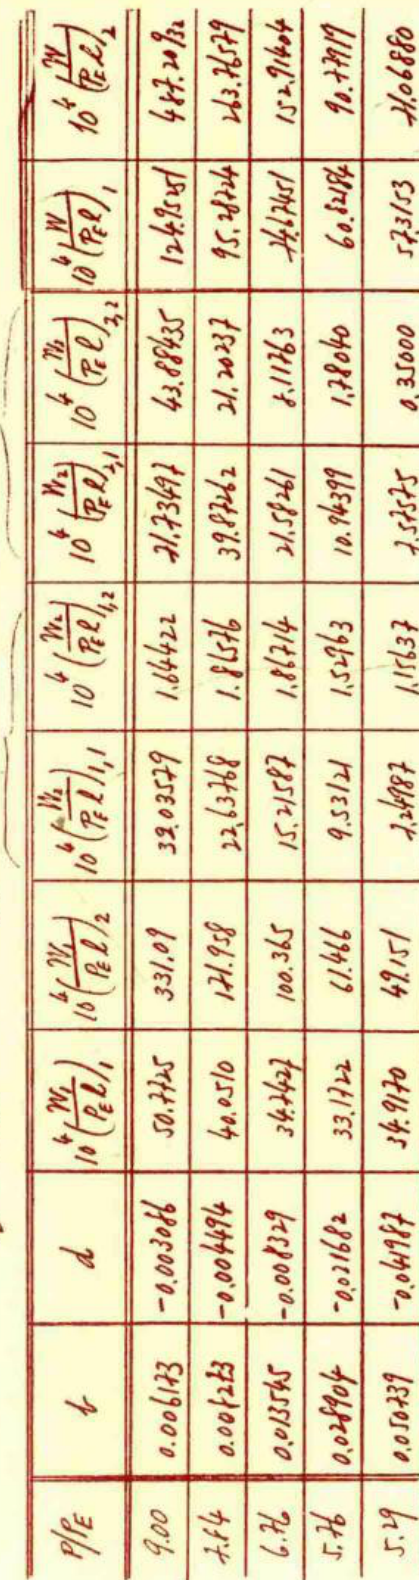 P/P_E b d 10^4 (W_1/P_E l)_1 10^4 (W_1/P_E l)_2 10^4 (W_2/P_E l)_1,1 10^4 (W_2/P_E l)_1,2 10^4 (W_2/P_E l)_2,1 10^4 (W_2/P_E l)_2,2 10^4 (W/P_E l)_1 10^4 (W/P_E l)_2
9.00 0.006173 -0.003086 50.7725 331.09 39.03579 1.64422 71.73497 43.88435 124.95251 487.20932
7.84 -0.004494 40.0510 171.958 22.63768 1.86576 39.87262 21.20237 95.28724 263.76579
6.76 0.013545 -0.008329 34.7427 100.365 15.21587 1.86714 21.58261 8.11763 74.67451 152.91404
5.76 0.028904 -0.021682 33.1722 61.466 9.53121 1.52963 10.94399 1.78040 60.82184 90.77919
5.29 0.050739 -0.041987 34.9170 49.151 7.24987 1.15637 7.57575 0.35000 57.3153 71.06880